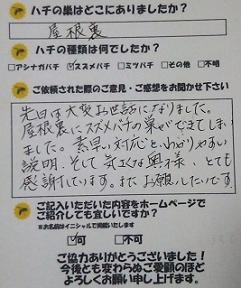 ハチの巣はどこにありましたか?
屋根裏
ハチの種類は何でしたか?
□アシナガバチ ☑スズメバチ □ミツバチ □その他 □不明
ご依頼された際のご意見・ご感想をお聞かせ下さい
先日は大変お世話になりました。
屋根裏にスズメバチの巣ができてしまい
ました。素早い対応とわかりやすい
説明、そして気さくな奥様、とても
感謝しています。またお願いしたいです
ご記入いただいた内容をホームページで
ご紹介しても宜しいですか?
※お名前はイニシャルで掲載いたします
☑可 □不可
ご協力ありがとうございました!
今後とも変わらぬご愛顧のほど
よろしくお願い申し上げます。